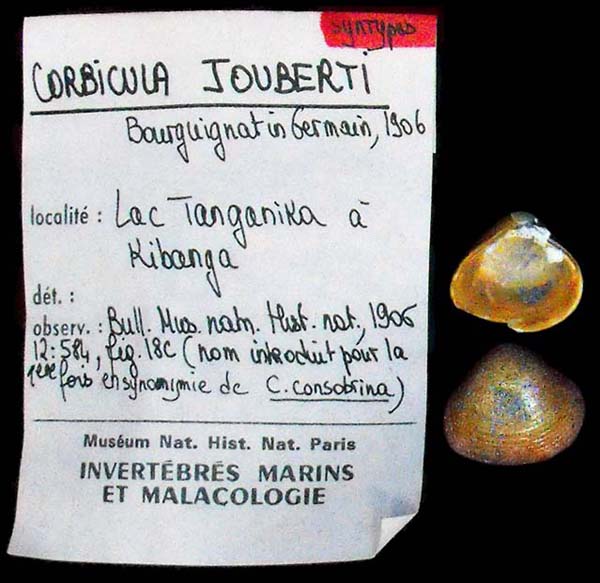 syntypes
CORBICULA JOUBERTI
Bourguignat in Germain, 1906
localité : Lac Tanganika à
Kibanga
dét. :
observ. : Bull. Mus. natn. Hist. nat., 1906
12: 584, fig. 18C (nom introduit pour la
1ère fois en synonymie de C. consobrina)
Muséum Nat. Hist. Nat. Paris
INVERTÉBRÉS MARINS
ET MALACOLOGIE